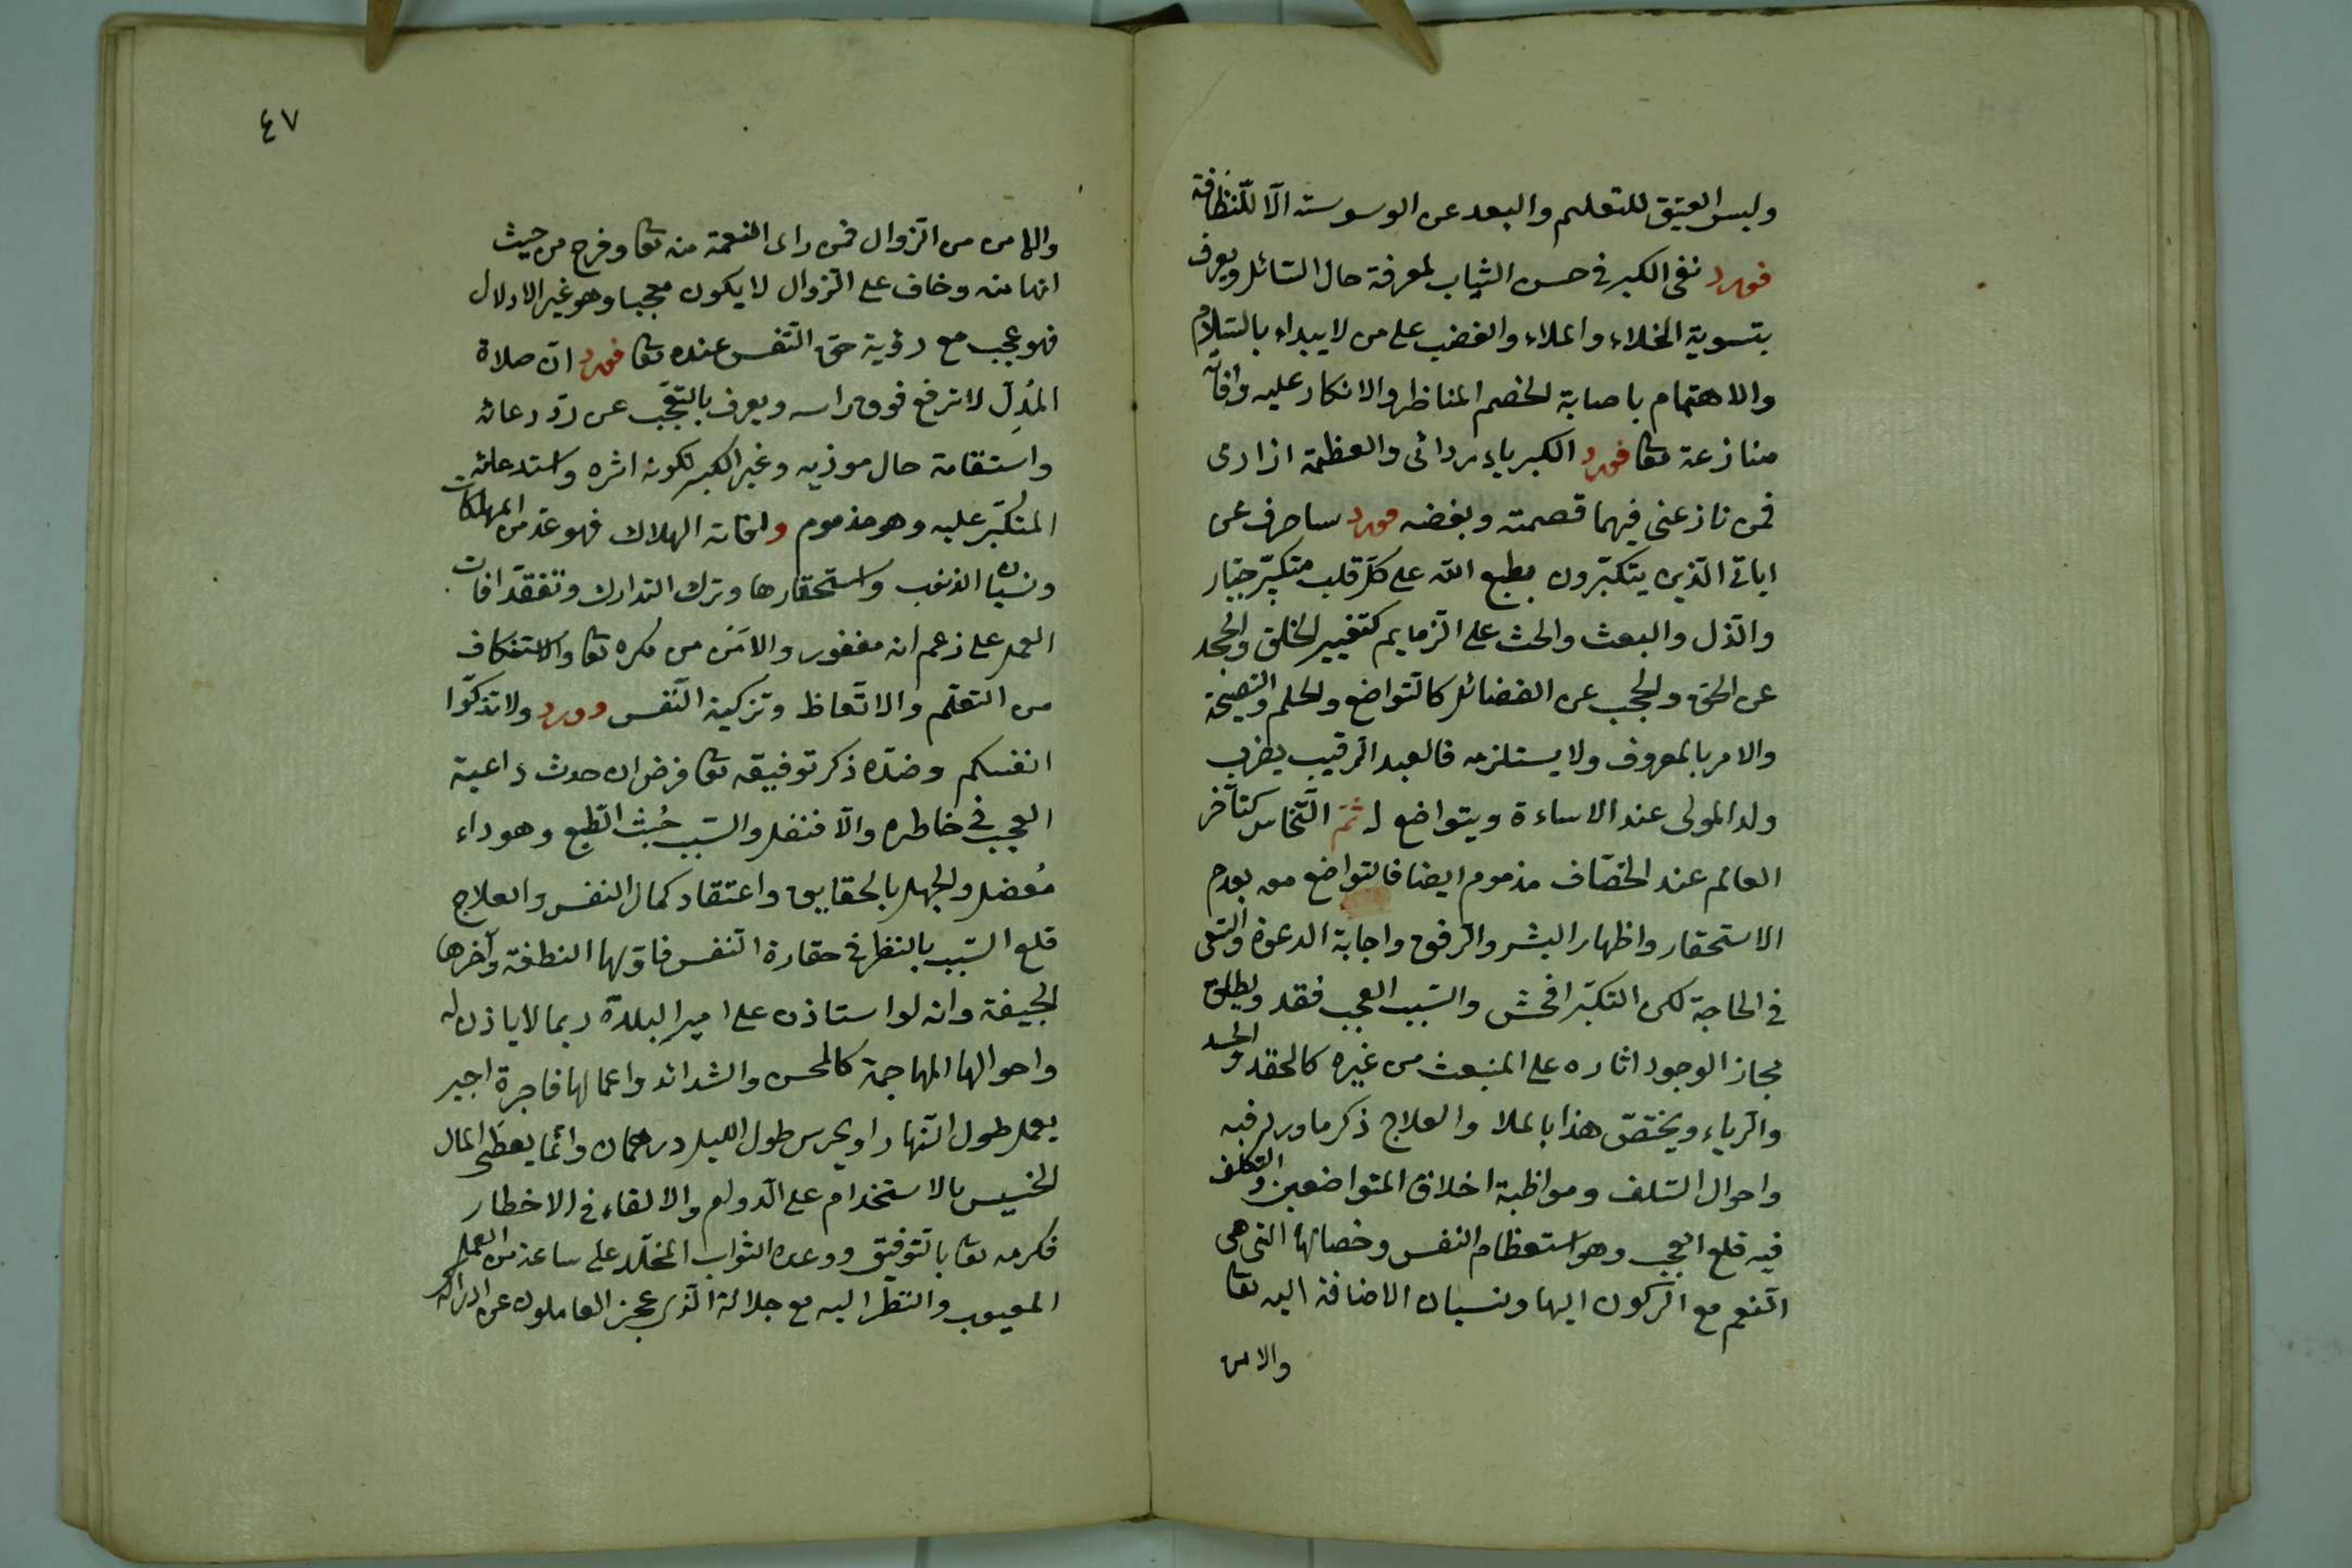 ولبس العتيق للتعليم والبعد عن الوسوسته الّا للنّظافة
فورد نفى الكبر فى حسن الثياب لمعرفة حال السّائل ويعرف
بتسوية الخلاء والملاء والغضب على من لا يبداء بالسّلام
والاهتمام باصابة لخصم المناظر والانكار عليه وافاته
منازعة تعا فورد الكبرياء ردائى والعظمة ازارى
فمن نازعنى فيهما قصمته وبغضه فورد ساصرف عن
اياتى الّذين يتكبّرون يطبع الله على كلّ قلب متكبّر جبّار
والذّل والبعث والحث على الرّمايم كتغيير الخلق والجحد
عن الحق والحجب عن الفضائل كالتّواضع ولحلم والنصيحة
والامر بالمعروف ولا يستلزمه فالعبد الرقيب يضرب
ولد المولى عند الاساءة ويتواضع له ثمّ التّخاس كتاخر
العالم عند الخصّاف مذموم ايضا فالتواضع معه بعدم
الاستحقار واظهار البشر والرّفق واجابة الدعوة والسّعى
فى الحاجة لكن التكبّر افحش والسّبب العجب فقد ويطلق
مجاز الوجود اثاره على المنبعث من غيره كالحقد والحسد
والرّياء ويختصّ هذا بالملا والعلاج ذكر ما ورد فيه
واحوال السّلف ومواظبة اخلاق المتواضعين والتكلف
فيه قلع العجب وهو استعظام النفس وخصالها التى هى
النّعم مع الرّكون اليها ونسيان الاضافة اليه تعا
والامن
٤٧
والامن من الزوال فمن راى النعمة منه تعا وفرح من حيث
انها منه وخاف على الزوال لا يكون معجبا وهو غير الادلال
فهو عجب مع رؤية حق النّفس عنده تعا فورد انّ صلاة
المُدِلّ لا ترفع فوق راسه ويعرف بالتعجّب عن ردّ دعائه
واستقامة حال موذيه وغير الكبر لكونه اثره واستدعائه
المتكبّر عليه وهو مذموم وافاته الهلاك فهو عدّ من المهلكات
ونسيان الذنوب واستحقارها وترك التدارك وتفقّد افات
العمل على زعم انه مغفور والامَن من مكره تعا والاستنكاف
من التعلّم والاتّعاظ وتزكية النّفس وورد ولا تزكّوا
انفسكم وضدّه ذكر توفيقه تعا فرض ان حدث داعية
العجب فى خاطره والّا فنفل والسّبب خُبث الطّبع وهو داء
مُعضل ولجهل بالحقايق واعتقاد كمال النفس والعلاج
قلع السّبب بالنظر فى حقارة النّفس فاوّلها النطفة وآخرها
لجيفة وانه لو استاذن على امير البلدة ربما لا ياذن له
واحوالها المهاجمة كالمحن والشدائد واعمالها فاجرة اجير
يعمل طول النّهار او يحرس طول الليل درهمان وانّما يعطى المال
الخسيس بالاستخدام على الدّوام والالقاء فى الاخطار
فكرمه تعا بالتّوفيق ووعده الثواب المخلّد على ساعة من العمل
المعيوب والنّظر اليه مع جلالة الّذى عجز العاملون عن ادراكه